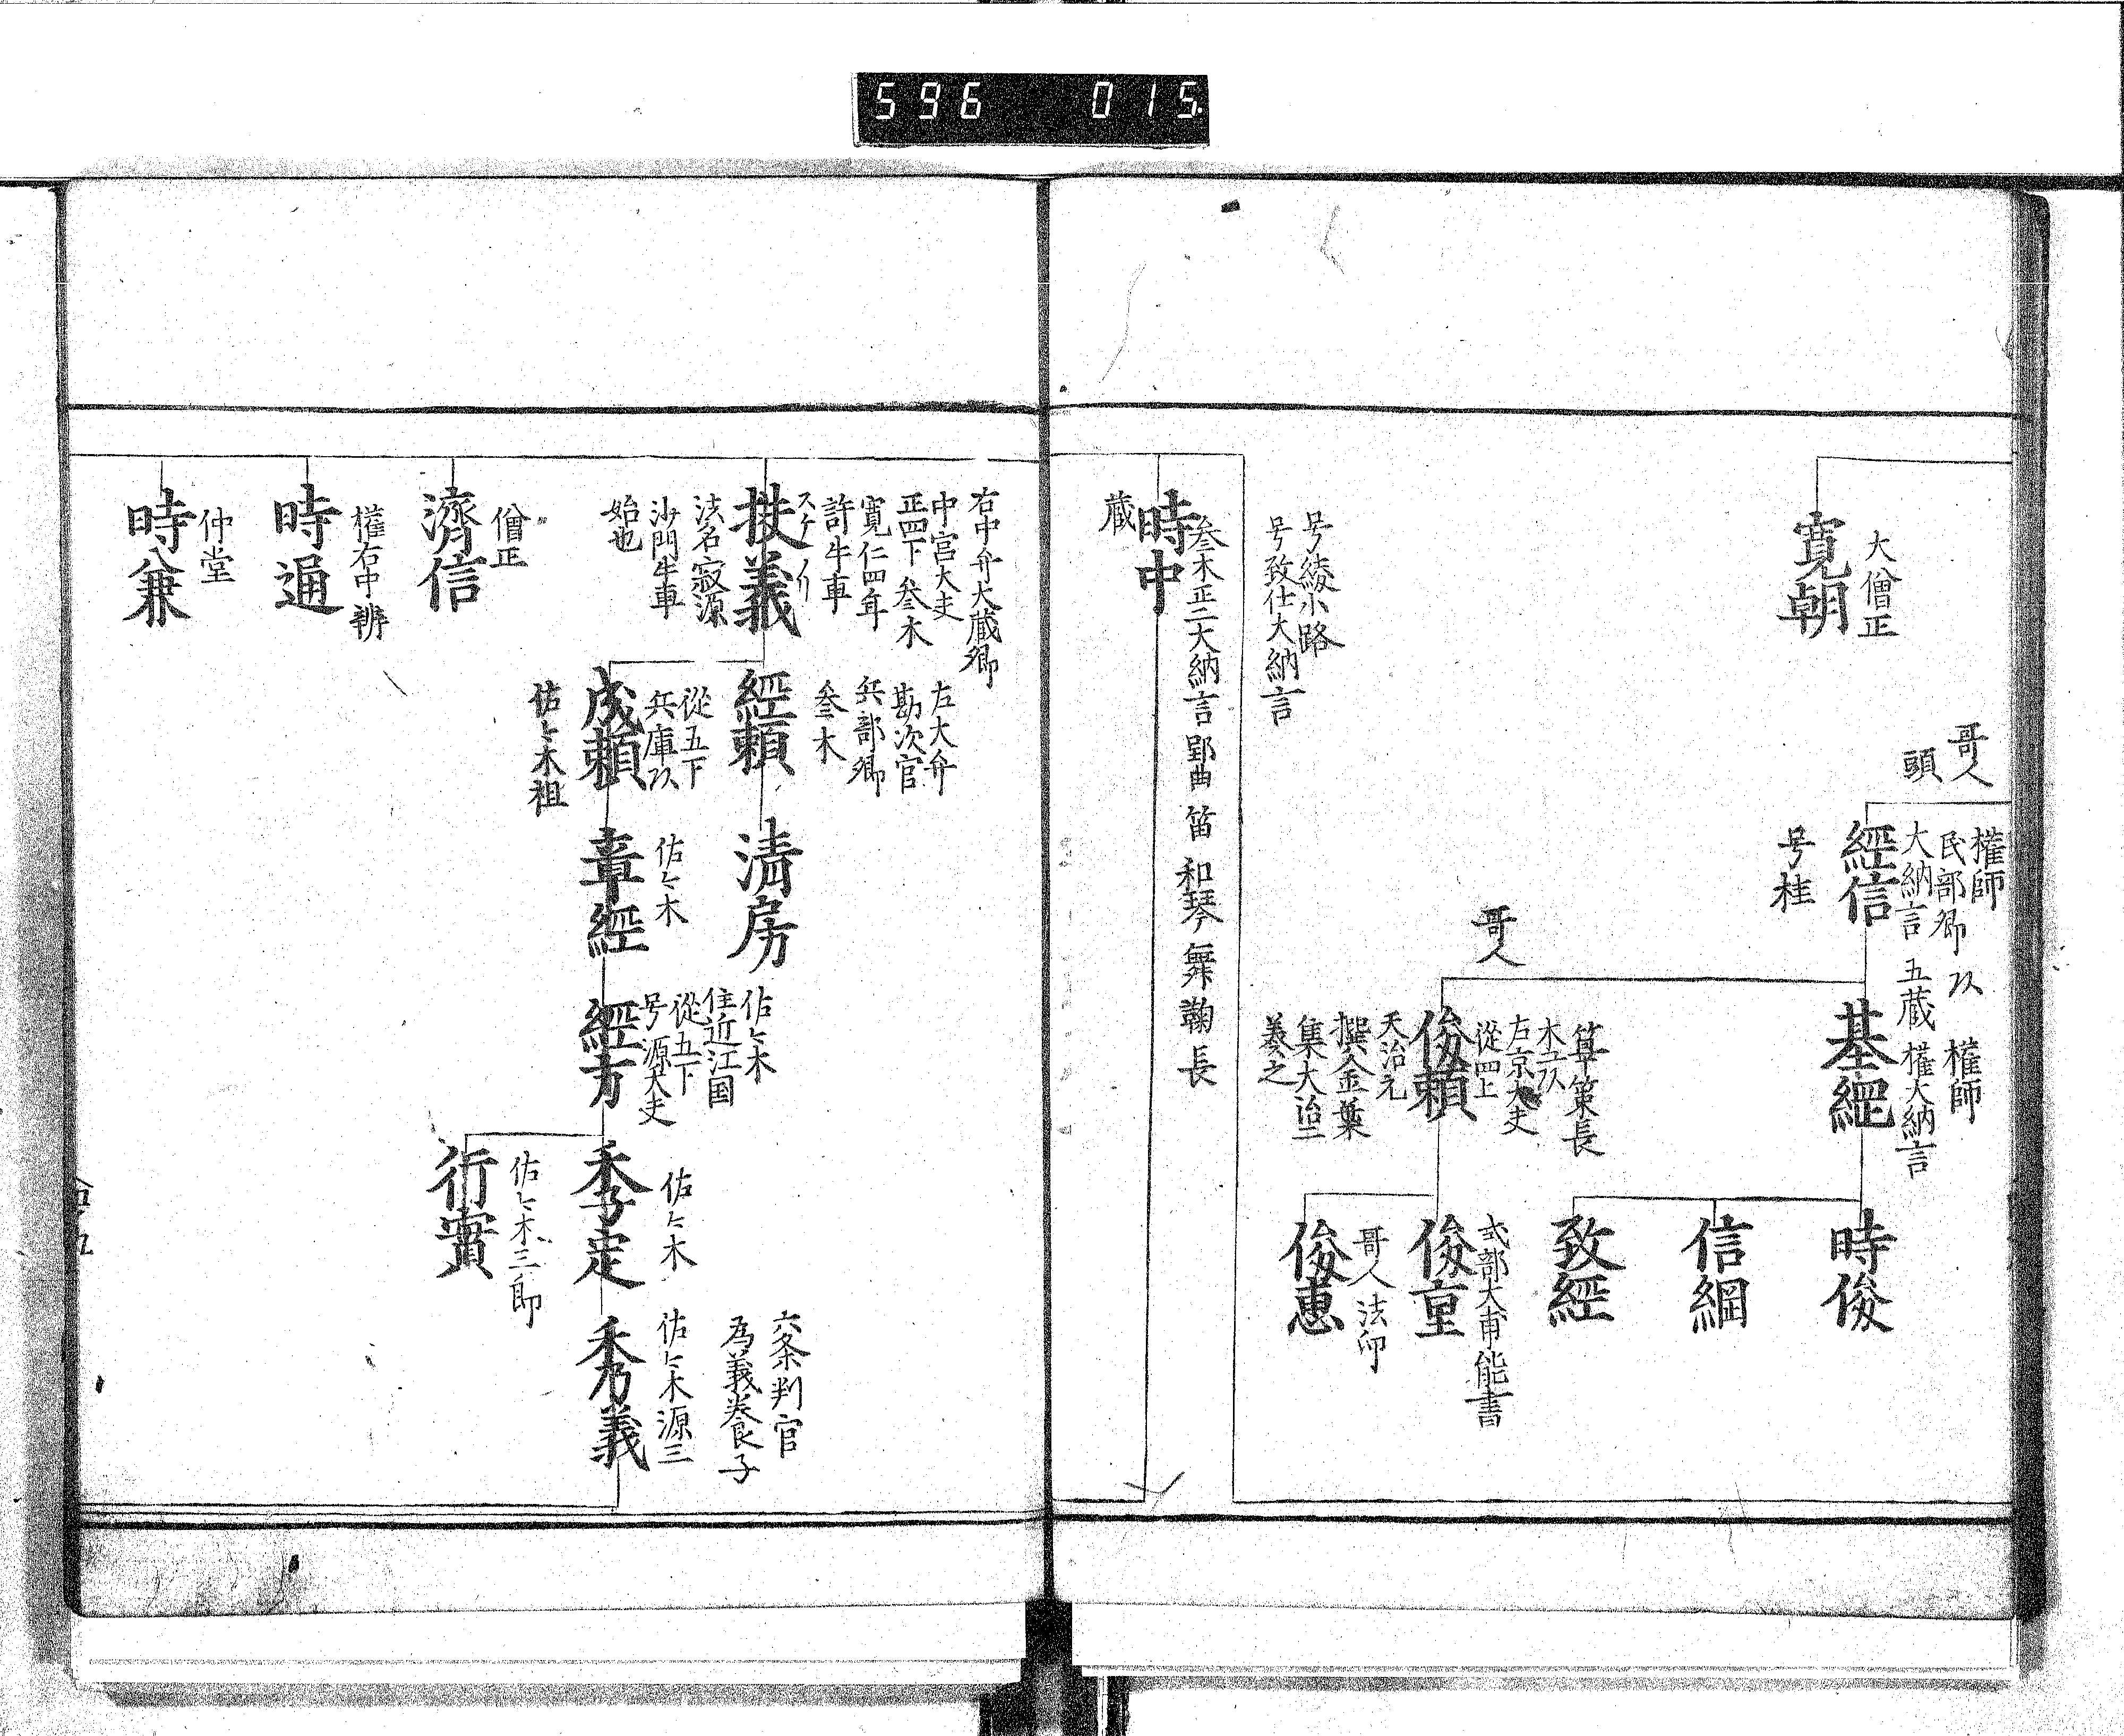 596 015
大僧正
寛朝
哥人
頭
權師
民部卿
大納言
經信
号桂
権師
五蔵 權大納言
基綱
時俊
信綱
致經
哥人
算策長
木工
左京大夫
從四上
俊頼
天治元
撰金葉
集大治二
奏之
式部大甫能書
俊重
哥人法印
俊惠
号綾小路
号致仕大納言
叅木正二大納言 郢曲 笛 和琴 舞 鞠 長
時中
蔵
右中弁大蔵卿
中宮大夫
正四下叅木
寛仁四年
許牛車
扶義
法名寂源
沙門牛車
始也
左大弁
勘次官
兵部卿
叅木
經頼
清房
從五下
兵庫
成頼
佑々木祖
佑々木
章經
佑々木
住近江国
從五下
号源大夫
經方
佑々木
季定
佑々木三郎
行實
六条判官
為義養子
佑々木源三
秀義
僧正
濟信
權右中辨
時通
仲堂
時兼